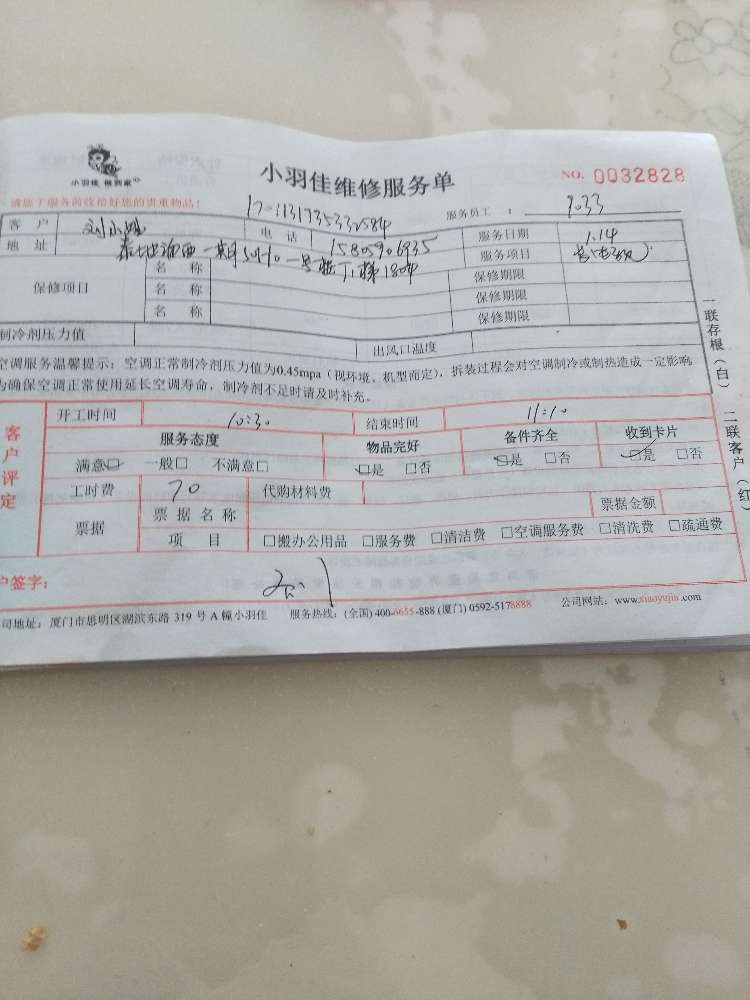 小羽佳 帮到家
小羽佳维修服务单
NO. 0032828
请您于服务前收拾好您的贵重物品!
服务员工 :
客 户 刘小姐 电 话 15805906935 服务日期 1.14
地 址 服务项目
保修项目 名 称 保修期限
名 称 保修期限
名 称 保修期限
制冷剂压力值 出风口温度
空调服务温馨提示:空调正常制冷剂压力值为0.45mpa(视环境、机型而定),拆装过程会对空调制冷或制热造成一定影响
为确保空调正常使用延长空调寿命,制冷剂不足时请及时补充。
客户评定
开工时间 10:30 结束时间 11:10
服务态度 物品完好 备件齐全 收到卡片
满意□ 一般□ 不满意□ □是 □否 □是 □否 □是 □否
工时费 70 代购材料费
票据 票 据 名 称 票据金额
项 目 □搬办公用品 □服务费 □清洁费 □空调服务费 □清洗费 □疏通费
户签字:
司地址:厦门市思明区湖滨东路 319 号 A 幢小羽佳 服务热线:(全国) 400-6655-888 (厦门) 0592-5178888 公司网站:www.xiaoyujia.com
一联存根(白) 二联客户(红)